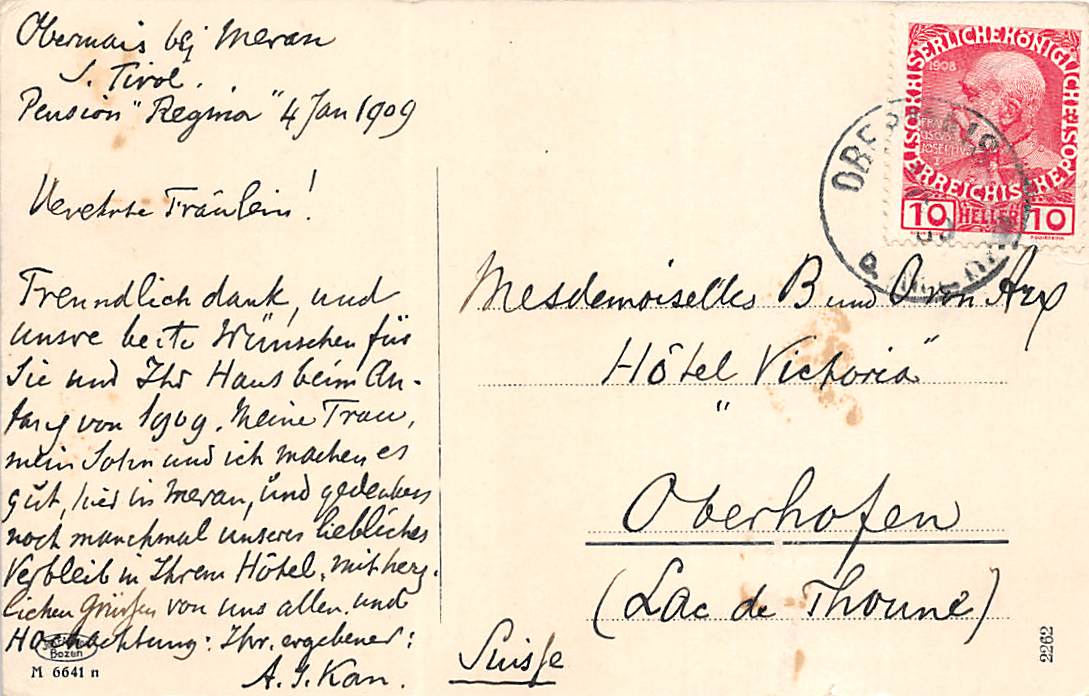 Obermais bej Meran
S. Tirol.
Pension "Regina" 4 Jan 1909
Verehrte Fräulein!
Freundlich dank, und
unsre beste Wünschen für
Sie und Ihr Haus beim An-
fang von 1909. Meine Frau,
mein Sohn und ich machen es
gut, hier in Meran, und gedenken
noch manchmal unseres liebliches
Verbleib in Ihrem Hôtel. mit herz-
lichen Grüssen von uns allen. und
Hochachtung: Ihr. ergebener:
A. J. Kan.
Bozen
M 6641 n
KAISERLICHE KÖNIGLICHE ÖSTERREICHISCHE POST
1908
FRANCISCUS JOSEPHUS I
10 HELLER 10
OBERMAIS
Mesdemoiselles B und A von Arx
Hôtel Victoria"
"
Oberhofen
(Lac de Thoune)
Suisse
2262